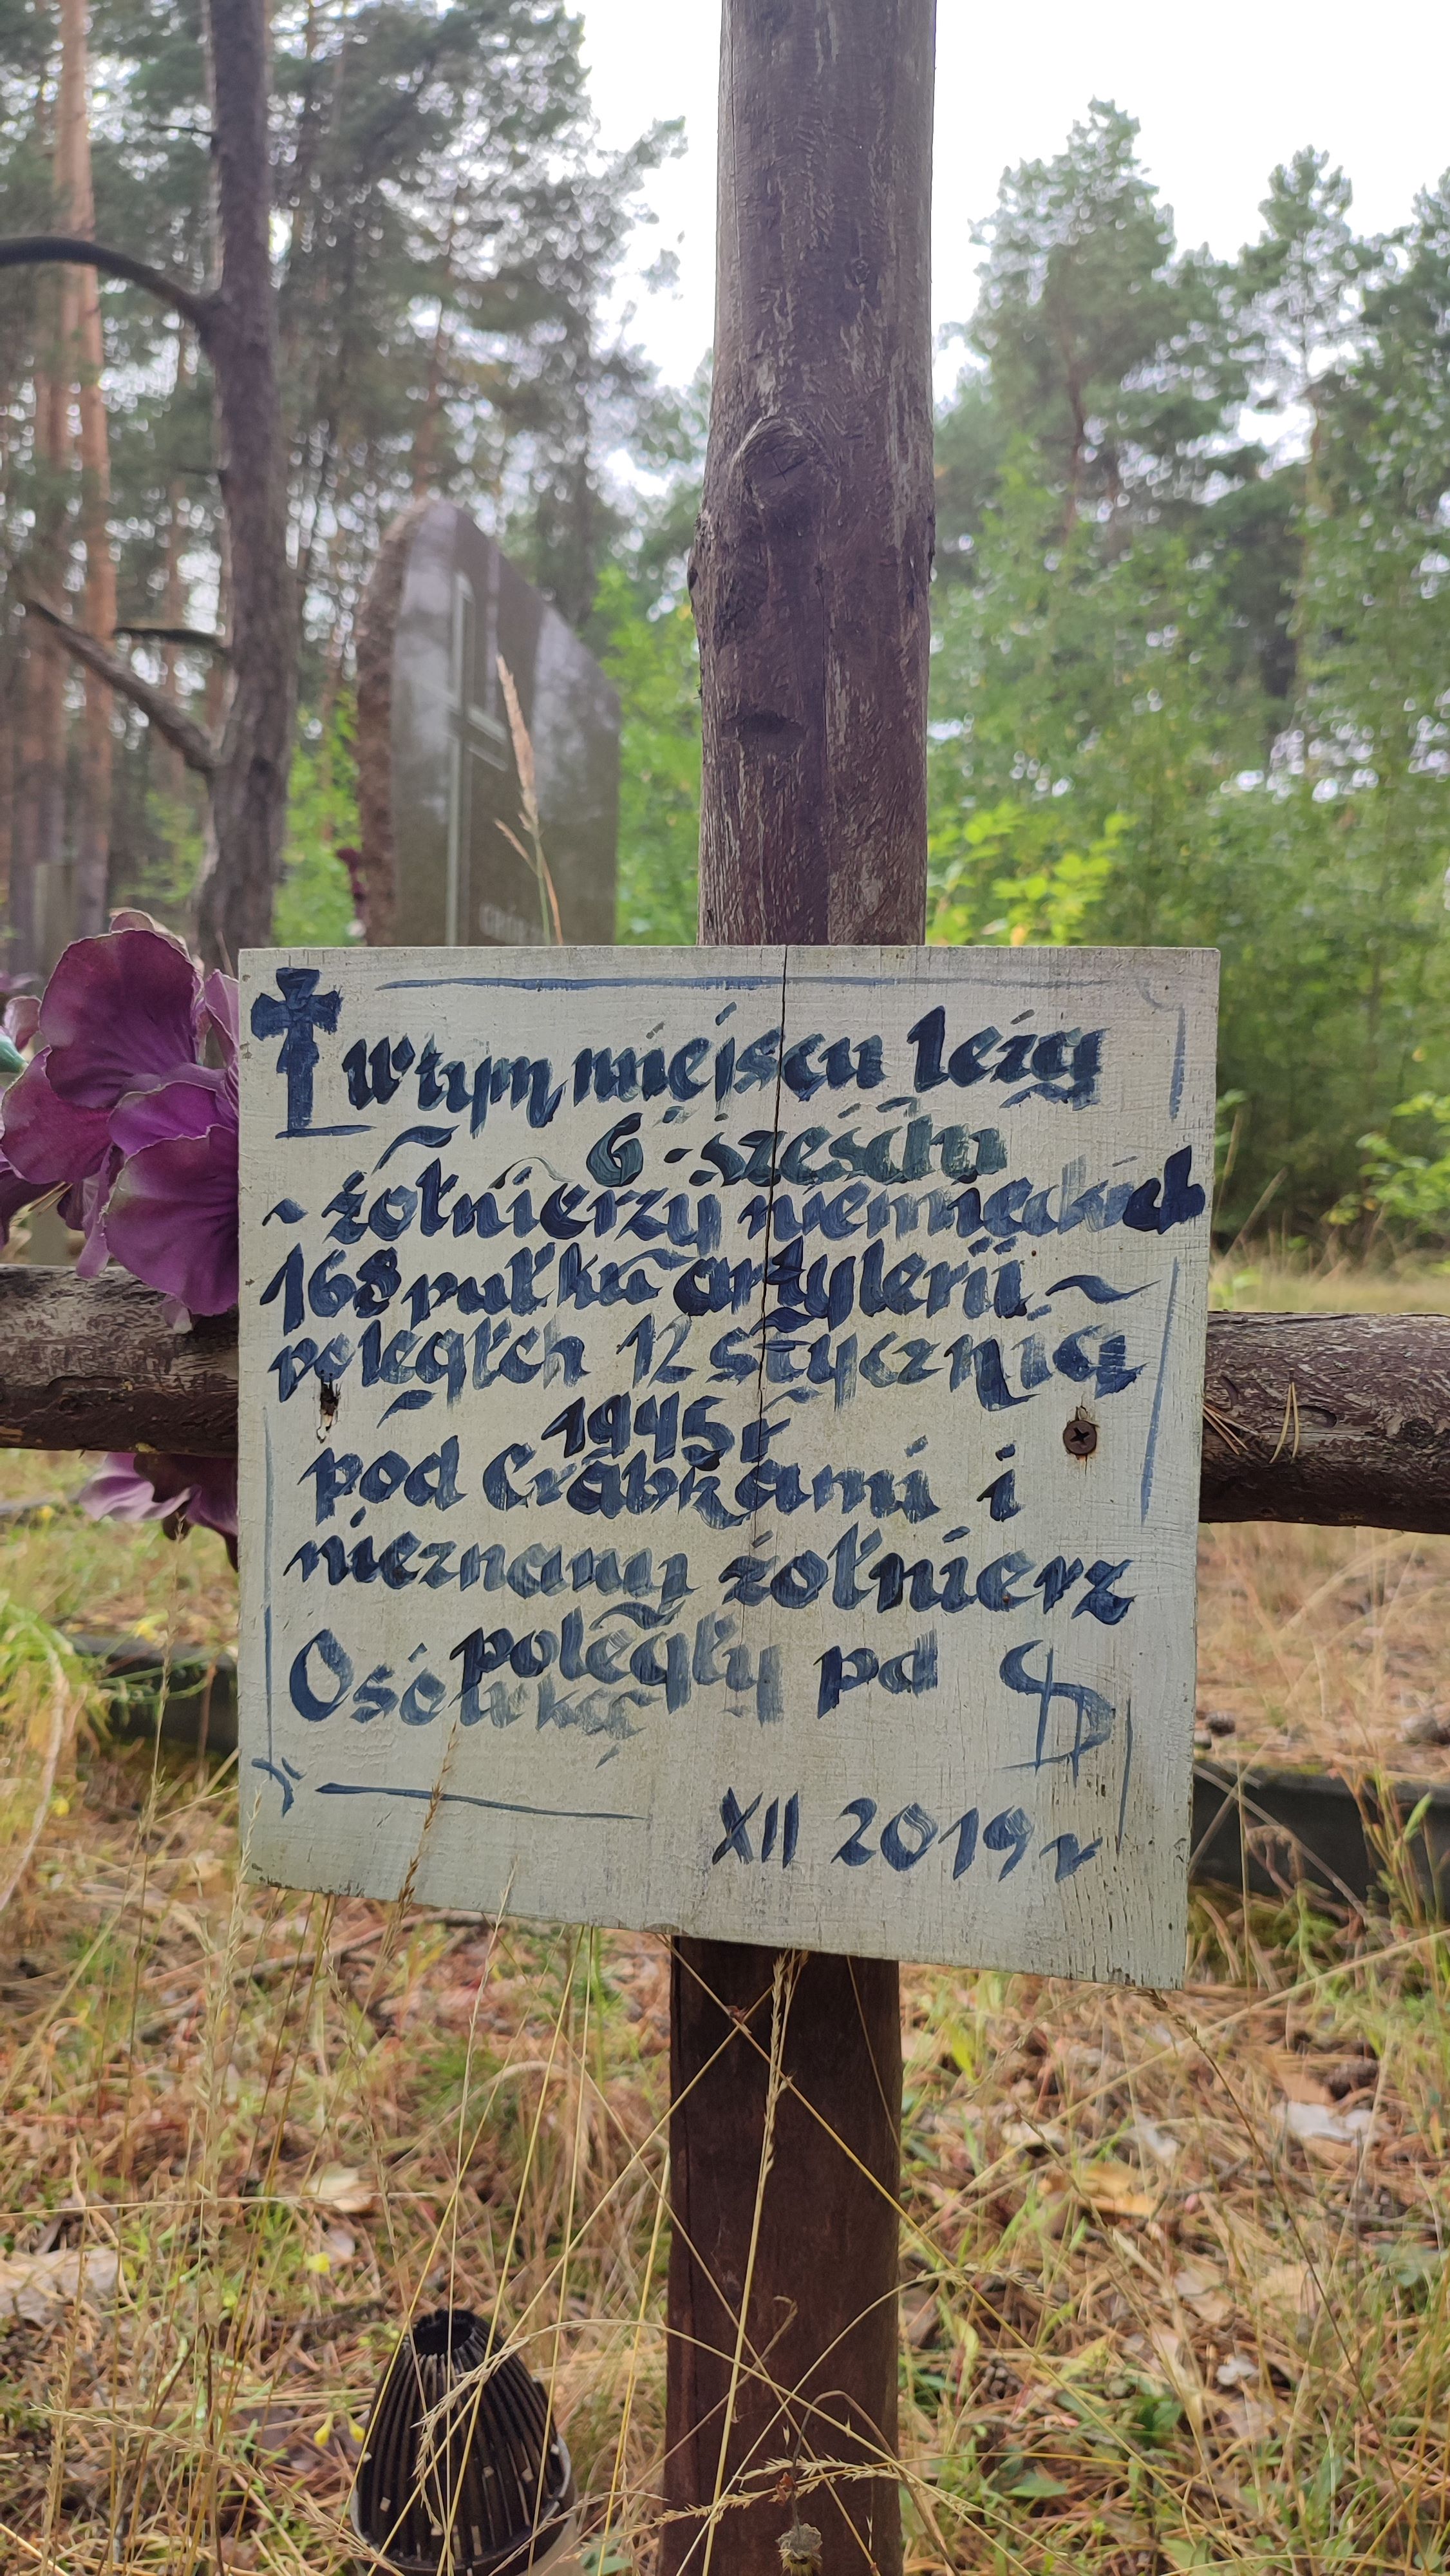 W tym miejscu leżą
6-sześciu
~ żołnierzy niemieckich
168 pułku artylerii ~
poległch 12 stycznia
1945 r
pod Crabkami i
nieznany żołnierz
poległy pd
Osówką
XII 2019 r